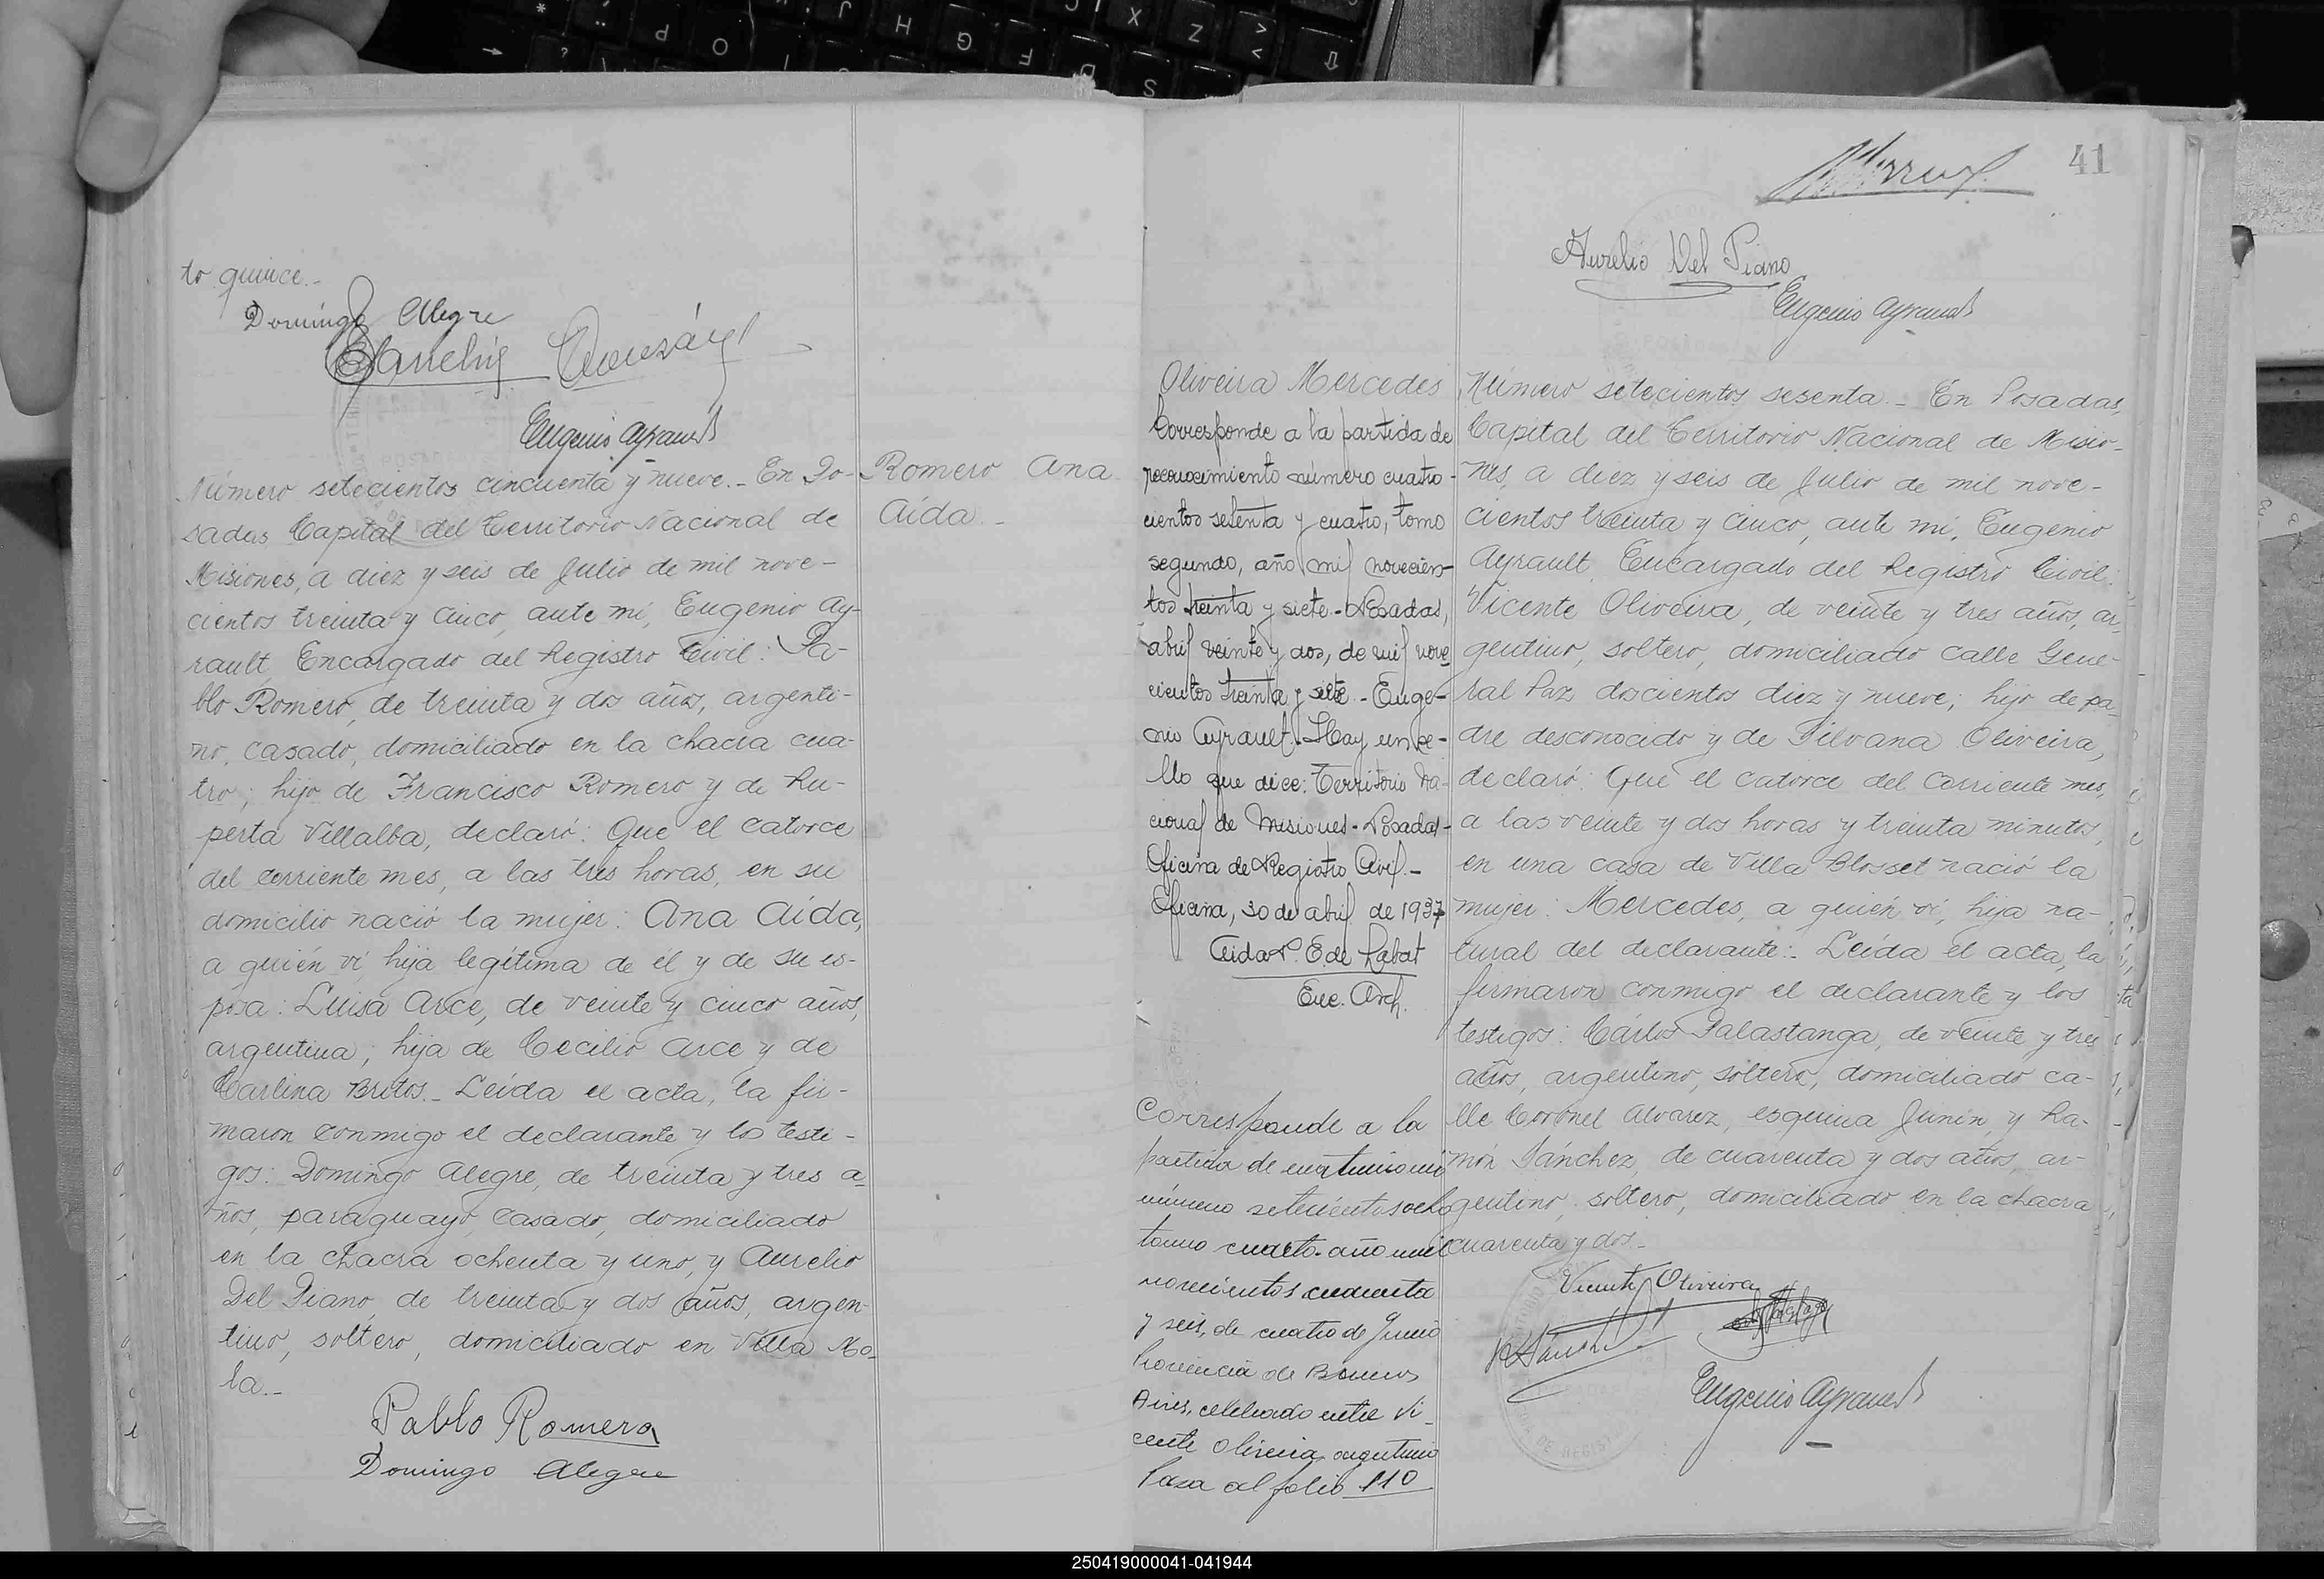 to quince.-
Domingo Alegre
Eugenio Ayrault
Número setecientos cincuenta y nueve.- En Po-
sadas, Capital del Territorio Nacional de
Misiones, a diez y seis de Julio de mil nove-
cientos treinta y cinco, ante mi, Eugenio Ay-
rault, Encargado del Registro Civil: Pa-
blo Romero, de treinta y dos años, argenti-
no, casado, domiciliado en la chacra cua-
tro; hijo de Francisco Romero y de Ru-
perta Villalba, declaró: Que el catorce
del corriente mes, a las tres horas, en su
domicilio nació la mujer: Ana Aída,
a quién ví hija legítima de él y de su es-
posa: Luisa Arce, de veinte y cinco años,
argentina; hija de Cecilio Arce y de
Carlina Britos.- Leída el acta, la fir-
maron conmigo el declarante y los testi-
gos: Domingo Alegre, de treinta y tres a-
ños, paraguayo, casado, domiciliado
en la chacra ochenta y uno, y Aurelio
Del Piano, de treinta y dos años, argen-
tino, soltero, domiciliado en Villa Mo-
la.-
Pablo Romero
Domingo Alegre
Romero Ana
Aída.-
41
Aurelio Del Piano
Eugenio Ayrault
Oliveira Mercedes
Corresponde a la partida de
reconocimiento número cuatro-
cientos setenta y cuatro, tomo
segundo, año mil novecien-
tos treinta y siete.- Posadas,
abril veinte y dos, de mil nove
cientos treinta y siete.- Euge-
nio Ayrault.- Hay un se-
llo que dice: Territorio Na-
cional de Misiones.- Posadas-
Oficina de Registro Civil.-
Oficina, 30 de abril de 1937
E. de Labat
Enc. Arch.
Corresponde a la
partida de matrimonio
número setecientos ocho
tomo cuarto año mil
novecientos cuarenta
y seis, de cuatro de Junio
Provincia de Buenos
Aires, celebrado entre Vi-
cente Oliveira, argentino
Pasa al folio 110
Número setecientos sesenta.- En Posadas,
Capital del Territorio Nacional de Misio-
nes, a diez y seis de Julio de mil nove-
cientos treinta y cinco, ante mi, Eugenio
Ayrault, Encargado del Registro Civil:
Vicente Oliveira, de veinte y tres años, ar-
gentino, soltero, domiciliado calle Gene-
ral Paz doscientos diez y nueve; hijo de pa-
dre desconocido y de Silvana Oliveira,
declaró: Que el catorce del corriente mes,
a las veinte y dos horas y treinta minutos,
en una casa de Villa Blosset nació la
mujer: Mercedes, a quién ví, hija na-
tural del declarante:- Leída el acta, la
firmaron conmigo el declarante y los
testigos: Cárlos Palastanga, de veinte y tres
años, argentino, soltero, domiciliado ca-
lle Coronel Alvarez, esquina Junín, y Ra-
món Sánchez, de cuarenta y dos años, ar-
gentino, soltero, domiciliado en la chacra
cuarenta y dos.-
Vicente Oliveira
R Sánchez
Eugenio Ayrault
250419000041-041944